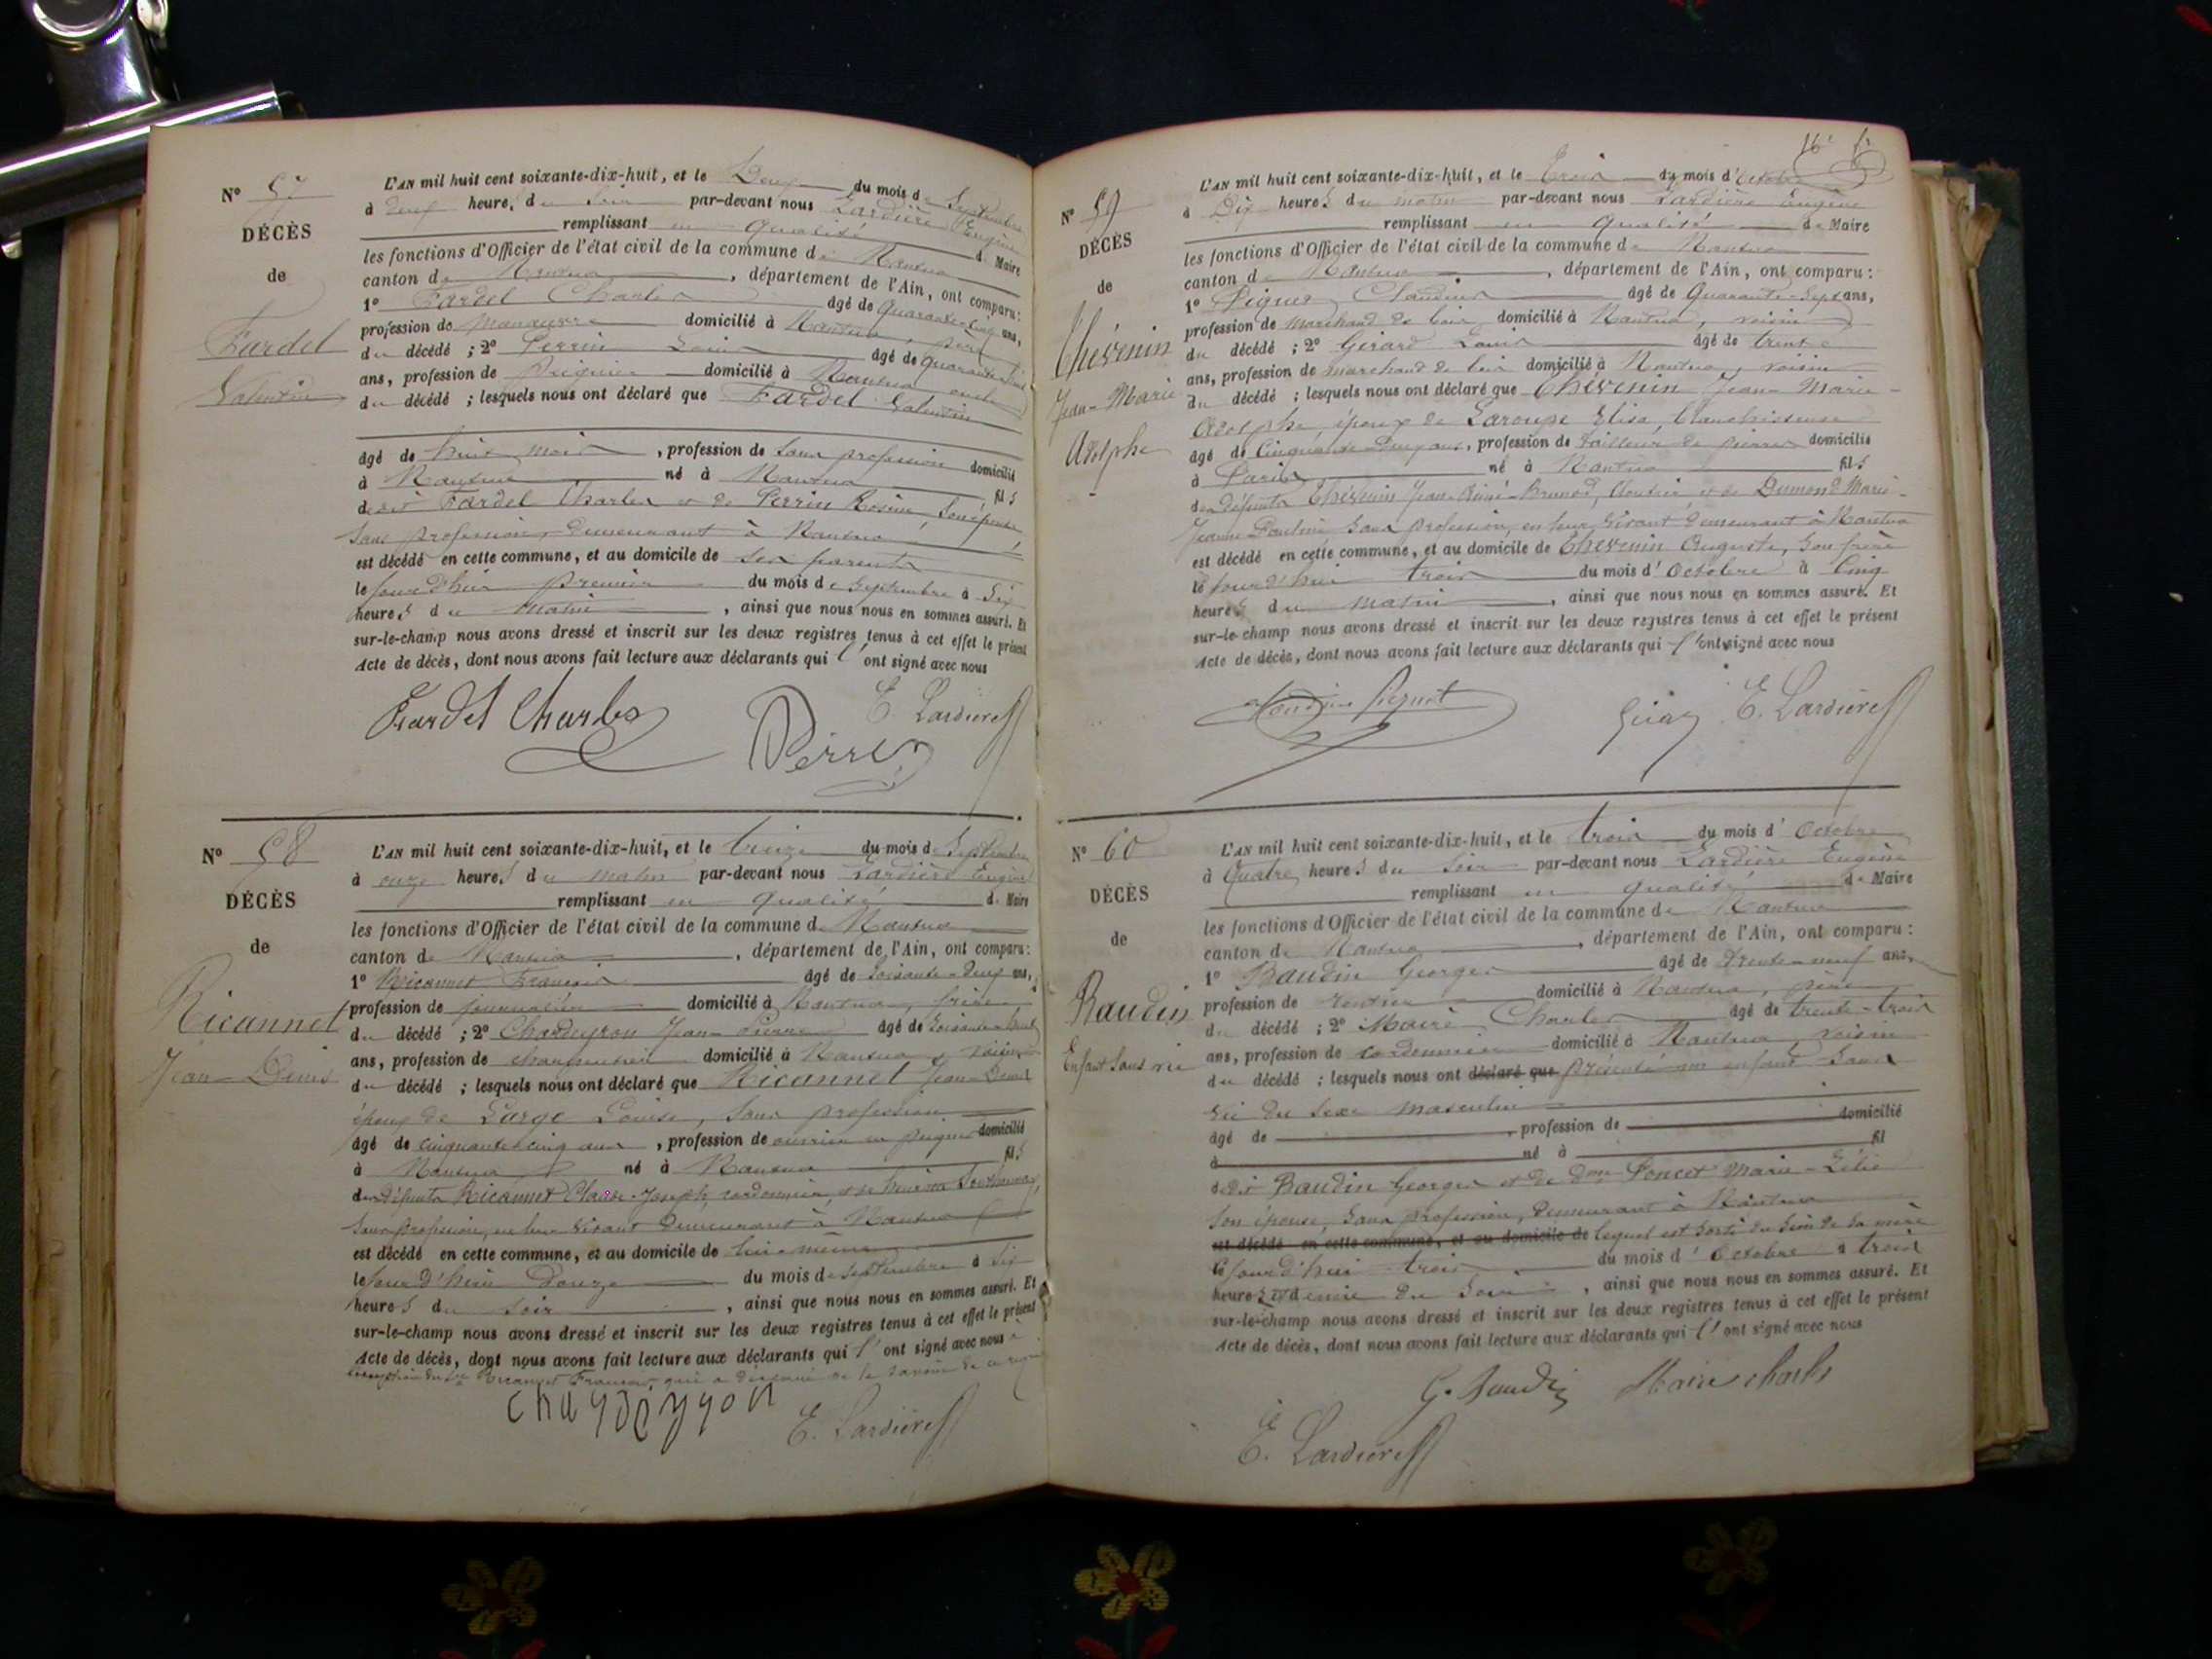 N° 57
DÉCÈS
de
Fardel
Valentin
L'AN mil huit cent soixante-dix-huit, et le Deux du mois de Septembre
à deux heures du Soir par-devant nous Lardière Eugène
remplissant en qualité de Maire
les fonctions d'Officier de l'état civil de la commune de Nantua
canton de Nantua, département de l'Ain, ont comparu:
1° Fardel Charles âgé de quarante-cinq ans,
profession de manœuvre domicilié à Nantua, père
du décédé ; 2° Perrin Louis âgé de quarante
ans, profession de domicilié à Nantua oncle
du décédé ; lesquels nous ont déclaré que Fardel Valentin
âgé de huit mois, profession de sans profession domicilié
à Nantua né à Nantua fils
de dit Fardel Charles et de Perrin Rosine, son épouse,
sans profession, demeurant à Nantua
est décédé en cette commune, et au domicile de ses parents
le jourd'hui premier du mois de Septembre à Six
heures du matin, ainsi que nous nous en sommes assuré. Et
sur-le-champ nous avons dressé et inscrit sur les deux registres tenus à cet effet le présent
Acte de décès, dont nous avons fait lecture aux déclarants qui l'ont signé avec nous
Fardel Charles
Perrin
E. Lardière
N° 58
DÉCÈS
de
Ricannet
Jean-Denis
L'AN mil huit cent soixante-dix-huit, et le treize du mois de Septembre
à onze heures du matin par-devant nous Lardière Eugène
remplissant en qualité de Maire
les fonctions d'Officier de l'état civil de la commune de Nantua
canton de Nantua, département de l'Ain, ont comparu:
1° Ricannet François âgé de soixante-deux ans,
profession de journalier domicilié à Nantua, frère
du décédé ; 2° Chardeyron Jean-Pierre âgé de soixante-huit
ans, profession de charpentier domicilié à Nantua, voisin
du décédé ; lesquels nous ont déclaré que Ricannet Jean-Denis
époux de Large Louise, sans profession
âgé de cinquante-cinq ans, profession de ouvrier en peignes domicilié
à Nantua né à Nantua fils
des défunts Ricannet Claude-Joseph, cordonnier, et de
sans profession, en leur vivant demeurant à Nantua
est décédé en cette commune, et au domicile de lui-même
le jourd'hui Douze du mois de Septembre à Six
heures du soir, ainsi que nous nous en sommes assuré. Et
sur-le-champ nous avons dressé et inscrit sur les deux registres tenus à cet effet le présent
Acte de décès, dont nous avons fait lecture aux déclarants qui l'ont signé avec nous à
l'exception du Sr Ricannet François qui a déclaré ne le savoir de ce requis
chardeyron
E. Lardière
16e
N° 59
DÉCÈS
de
Chévenin
Jean-Marie
Adolphe
L'AN mil huit cent soixante-dix-huit, et le Trois du mois d'Octobre
à Dix heures du matin par-devant nous Lardière Eugène
remplissant en qualité de Maire
les fonctions d'Officier de l'état civil de la commune de Nantua
canton de Nantua, département de l'Ain, ont comparu:
1° Pignet Claudius âgé de Quarante-Sept ans,
profession de marchand de bois domicilié à Nantua, voisin
du décédé ; 2° Girard Louis âgé de trente
ans, profession de marchand de bois domicilié à Nantua, voisin
du décédé ; lesquels nous ont déclaré que Chévenin Jean-Marie-
Adolphe, époux de Laroupe Elisa, blanchisseuse
âgé de Cinquante-deux ans, profession de Tailleur de pierres domicilié
à Paris né à Nantua fils
des défunts Chévenin Jean-René-Brunod, cloutier et de Dumond Marie-
Jeanne Pauline, sans profession, en leur vivant demeurant à Nantua
est décédé en cette commune, et au domicile de Chévenin Auguste, son frère
le jourd'hui trois du mois d'Octobre à Cinq
heures du matin, ainsi que nous nous en sommes assuré. Et
sur-le-champ nous avons dressé et inscrit sur les deux registres tenus à cet effet le présent
Acte de décès, dont nous avons fait lecture aux déclarants qui l'ont signé avec nous
Claudius Pignet
E. Lardière
N° 60
DÉCÈS
de
Baudin
Enfant sans vie
L'AN mil huit cent soixante-dix-huit, et le trois du mois d'Octobre
à Quatre heures du Soir par-devant nous Lardière Eugène
remplissant en qualité de Maire
les fonctions d'Officier de l'état civil de la commune de Nantua
canton de Nantua, département de l'Ain, ont comparu:
1° Baudin Georges âgé de trente-neuf ans,
profession de rentier domicilié à Nantua, père
du décédé ; 2° Maire Charles âgé de trente-trois
ans, profession de cordonnier domicilié à Nantua, voisin
du décédé ; lesquels nous ont déclaré que présenté un enfant sans
vie du sexe masculin
âgé de , profession de domicilié
à né à fil
de dit Baudin Georges et de dme Poncet Marie-Zélie
son épouse, sans profession, demeurant à Nantua
est décédé en cette commune, et au domicile de lequel est sorti du sein de sa mère
le jourd'hui trois du mois d'Octobre à trois
heures et demie du Soir, ainsi que nous nous en sommes assuré. Et
sur-le-champ nous avons dressé et inscrit sur les deux registres tenus à cet effet le présent
Acte de décès, dont nous avons fait lecture aux déclarants qui l'ont signé avec nous
G. Baudin Maire charles
E. Lardière